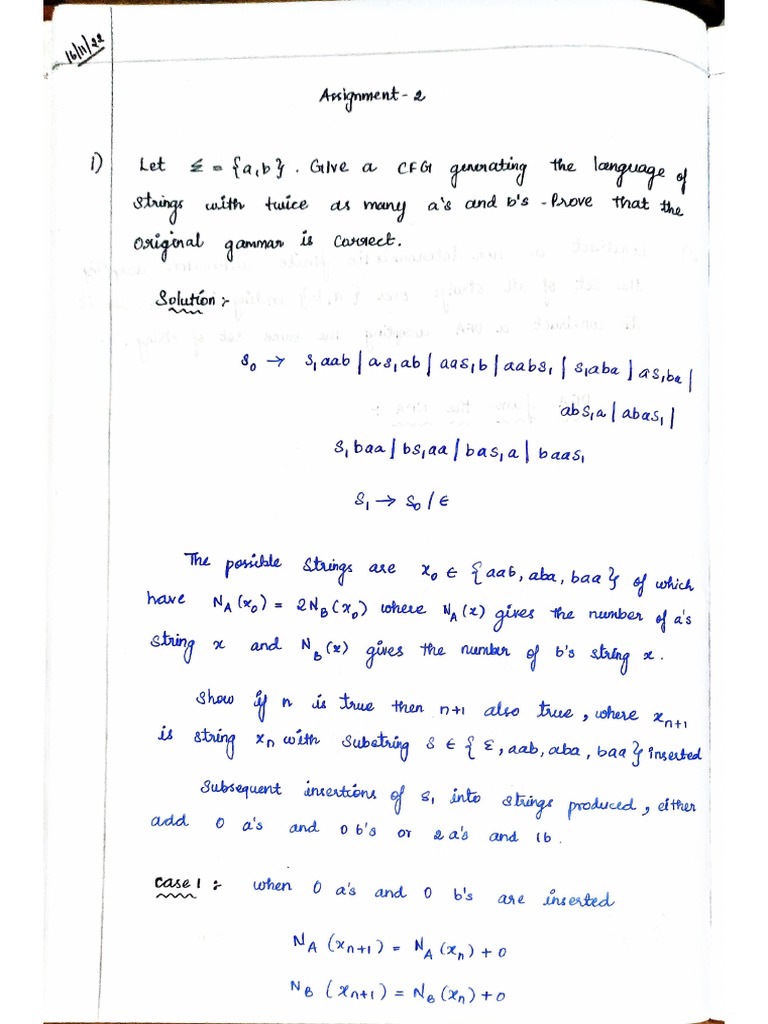 16/11/22
Assignment - 2
1) Let Σ = {a,b}. Give a CFG generating the language of
strings with twice as many a's and b's - Prove that the
original gammar is correct.
Solution :-
S₀ → S₁aab | aS₁ab | aaS₁b | aabS₁ | S₁aba | aS₁ba |
abS₁a | abaS₁ |
S₁baa | bS₁aa | baS₁a | baaS₁
S₁ → S₀ / ε
The possible strings are x₀ ∈ {aab, aba, baa} of which
have N_A(x₀) = 2N_B(x₀) where N_A(x) gives the number of a's
string x and N_B(x) gives the number of b's string x.
Show if n is true then n+1 also true, where x_{n+1}
is string x_n with substring S ∈ {ε, aab, aba, baa} inserted
Subsequent insertions of S₁ into strings produced, either
add 0 a's and 0 b's or 2 a's and 1b.
Case 1 :- when 0 a's and 0 b's are inserted
N_A (x_{n+1}) = N_A (x_n) + 0
N_B (x_{n+1}) = N_B (x_n) + 0